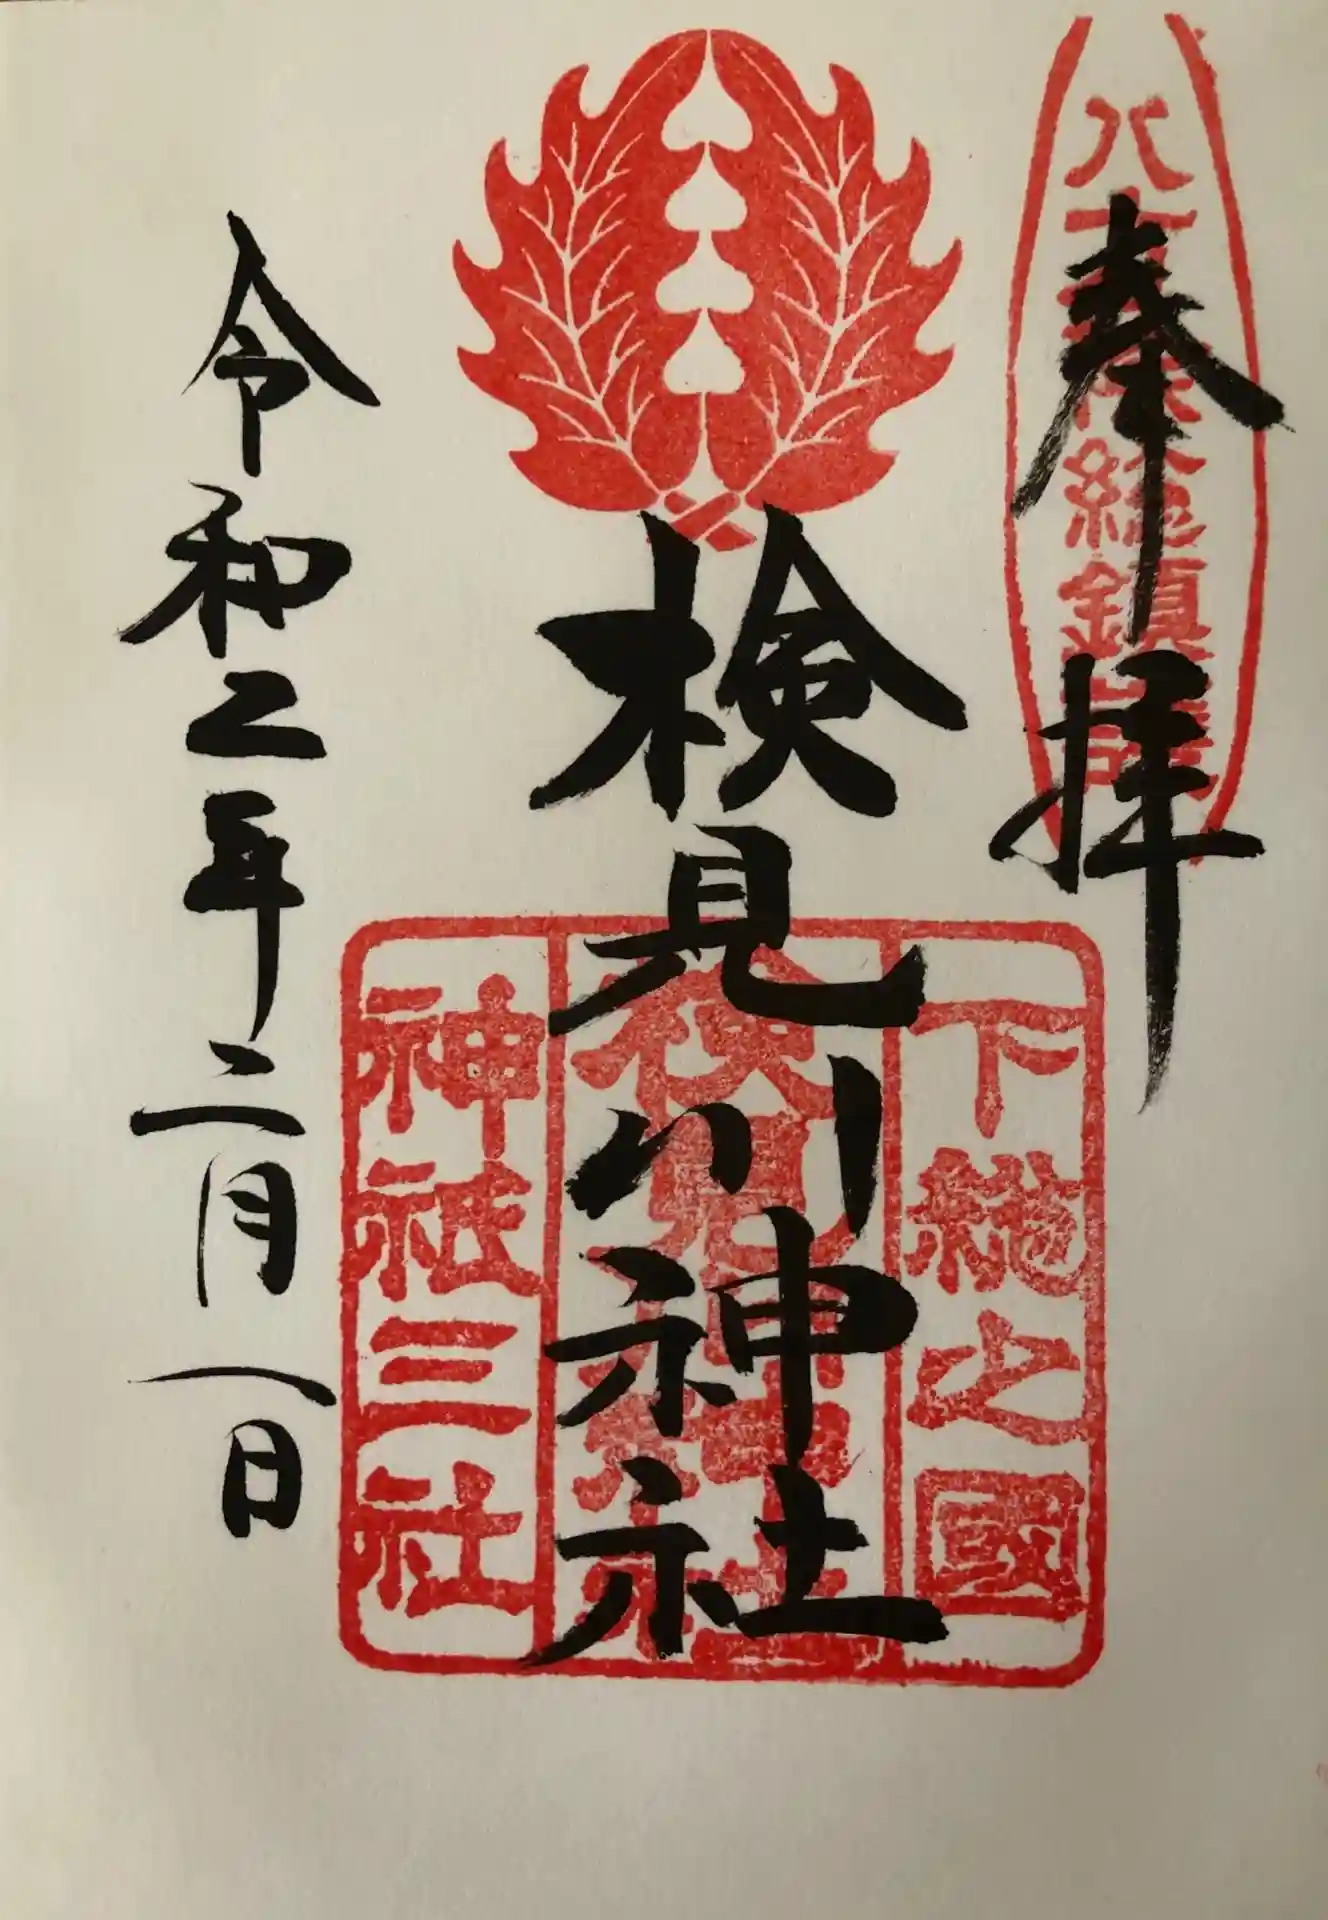 奉拝
八方除総鎮護
検見川神社
下総之國
検見川神社
神祇三社
令和二年二月一日